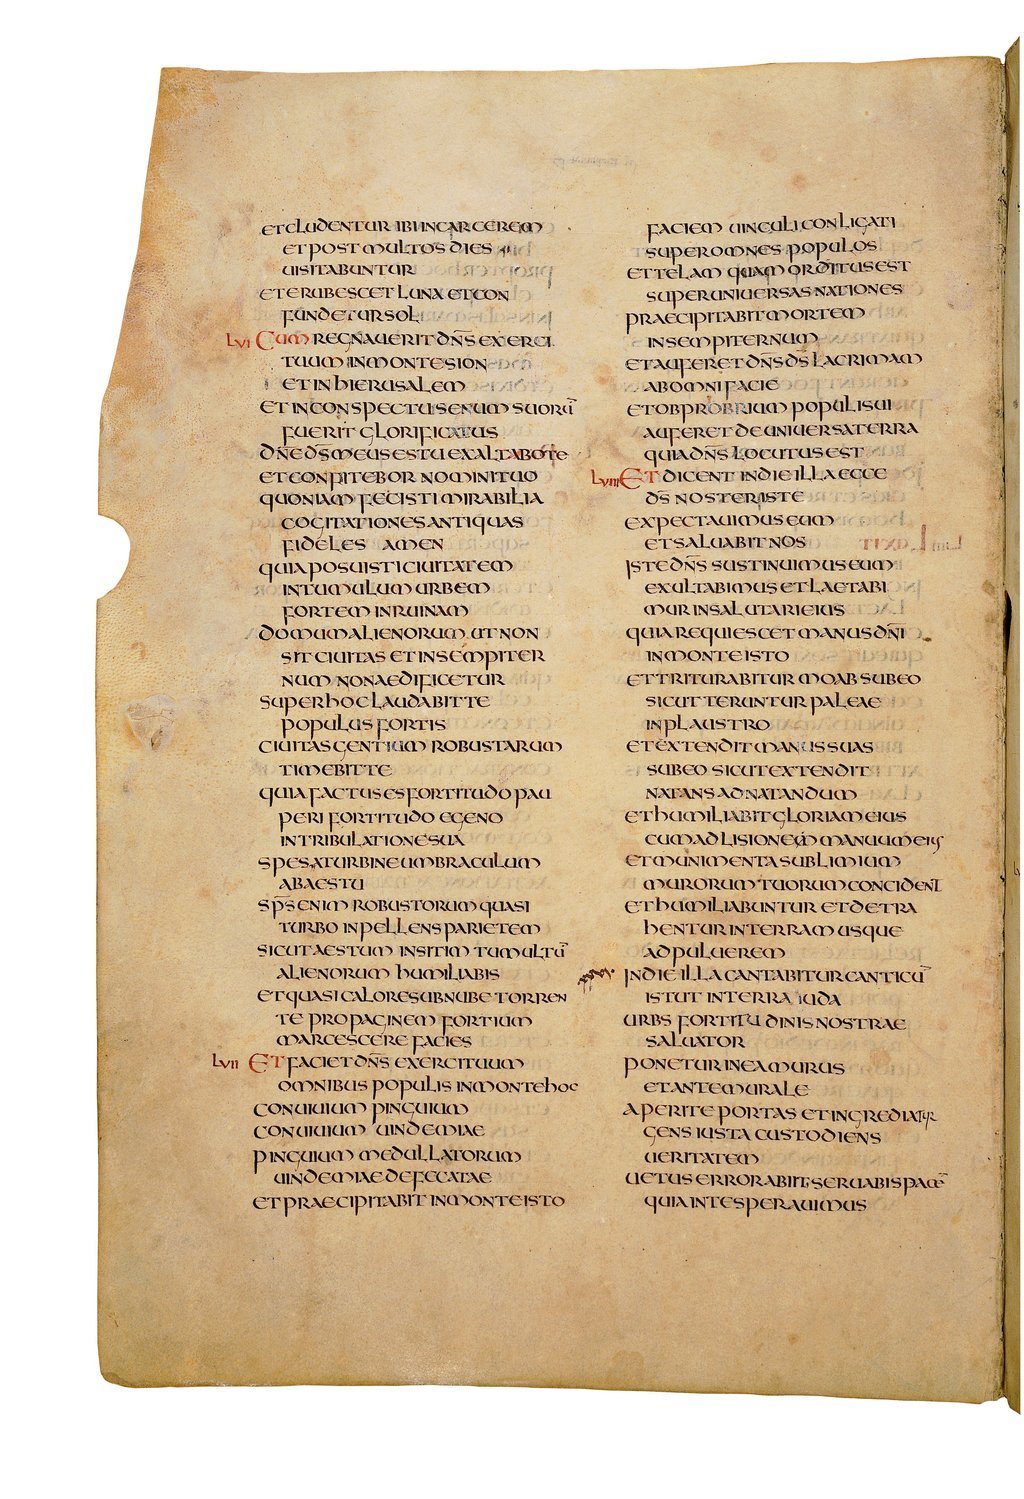 et cludentur ibi in carcerem
et post multos dies
uisitabuntur
et erubescet luna et con
fundetur sol
LVI Cum regnauerit dn̄s exerci
tuum in monte sion
et in hierusalem
et in conspectu senum suorū
fuerit glorificatus
dn̄e ds̄ meus es tu exaltabo te
et confitebor nomini tuo
quoniam fecisti mirabilia
cogitationes antiquas
fideles amen
quia posuisti ciuitatem
in tumulum urbem
fortem in ruinam
domum alienorum ut non
sit ciuitas et in sempiter
num non aedificetur
super hoc laudabit te
populus fortis
ciuitas gentium robustarum
timebit te
quia factus es fortitudo pau
peri fortitudo egeno
in tribulatione sua
spes a turbine umbraculum
ab aestu
sp̄s enim robustorum quasi
turbo inpellens parietem
sicut aestum in sitim tumultū
alienorum humiliabis
et quasi calore sub nube torren
te propaginem fortium
marcescere facies
LVII Et faciet dn̄s exercituum
omnibus populis in monte hoc
conuiuium pinguium
conuiuium uindemiae
pinguium medullatorum
uindemiae defecatae
et praecipitabit in monte isto
faciem uinculi conligati
super omnes populos
et telam quam orditus est
super uniuersas nationes
praecipitabit mortem
in sempiternum
et auferet dn̄s ds̄ lacrimam
ab omni facie
et obprobrium populi sui
auferet de uniuersa terra
quia dn̄s locutus est
LVIII Et dicent in die illa ecce
ds̄ noster iste
expectauimus eum
et saluabit nos
iste dn̄s sustinuimus eum
exultabimus et laetabi
mur in salutari eius
quia requiescet manus dn̄i
in monte isto
et triturabitur moab sub eo
sicut teruntur paleae
in plaustro
et extendit manus suas
sub eo sicut extendit
natans ad natandum
et humiliabit gloriam eius
cum adlisione manuum eius
et munimenta sublimium
murorum tuorum concident
et humiliabuntur et detra
hentur in terram usque
ad puluerem
In die illa cantabitur canticū
istut in terra iuda
urbs fortitudinis nostrae
saluator
ponetur in ea murus
et antemurale
aperite portas et ingrediatur
gens iusta custodiens
ueritatem
uetus error abiit seruabis pacē
quia in te sperauimus